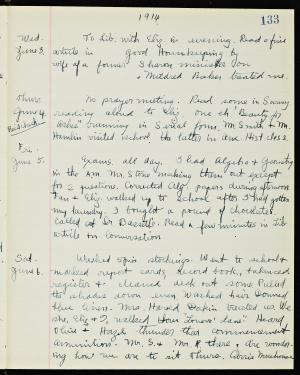 1914
133
Wed. To Lib. with Eliz. in evening. Read a fine
June 3. article in Good Housekeeping by
wife of a former Sharon minister on
Mildred Baker treated me.
Thurs. No prayer meeting. Read some in Sunny
June 4. reading aloud to Eliz. one ch "Beauty for
Ashes" running in Serial form. Mr. Smith + Mr.
Hamlin visited School, the latter in Anc. Hist class.
Fri. Exams. all day. I had Algebra + Geometry
June 5. in the A.M. Mr. Stone making them out except
for 2 questions. Corrected Alg. papers during afternoon
Fan + Eliz. walked up to School after I had gotten
my laundry. I bought a pound of chocolates.
Called at Dr. Read a few minutes in Lib.
article on Conversation
Sat. Washed a pr. stockings. Went to school +
June 6. marked report cards, record book, + balanced
register + cleaned desk out some. Pulled
the shades down even. Washed hair. Donned
blue linen. Mrs. Harold visited us. We
she, Eliz + I, walked "down town". Heard
Olive + Hazel thunder their commencement
ammunition. Mr. S. + Mr. there, are wonder-
ing how we are to sit Thurs.